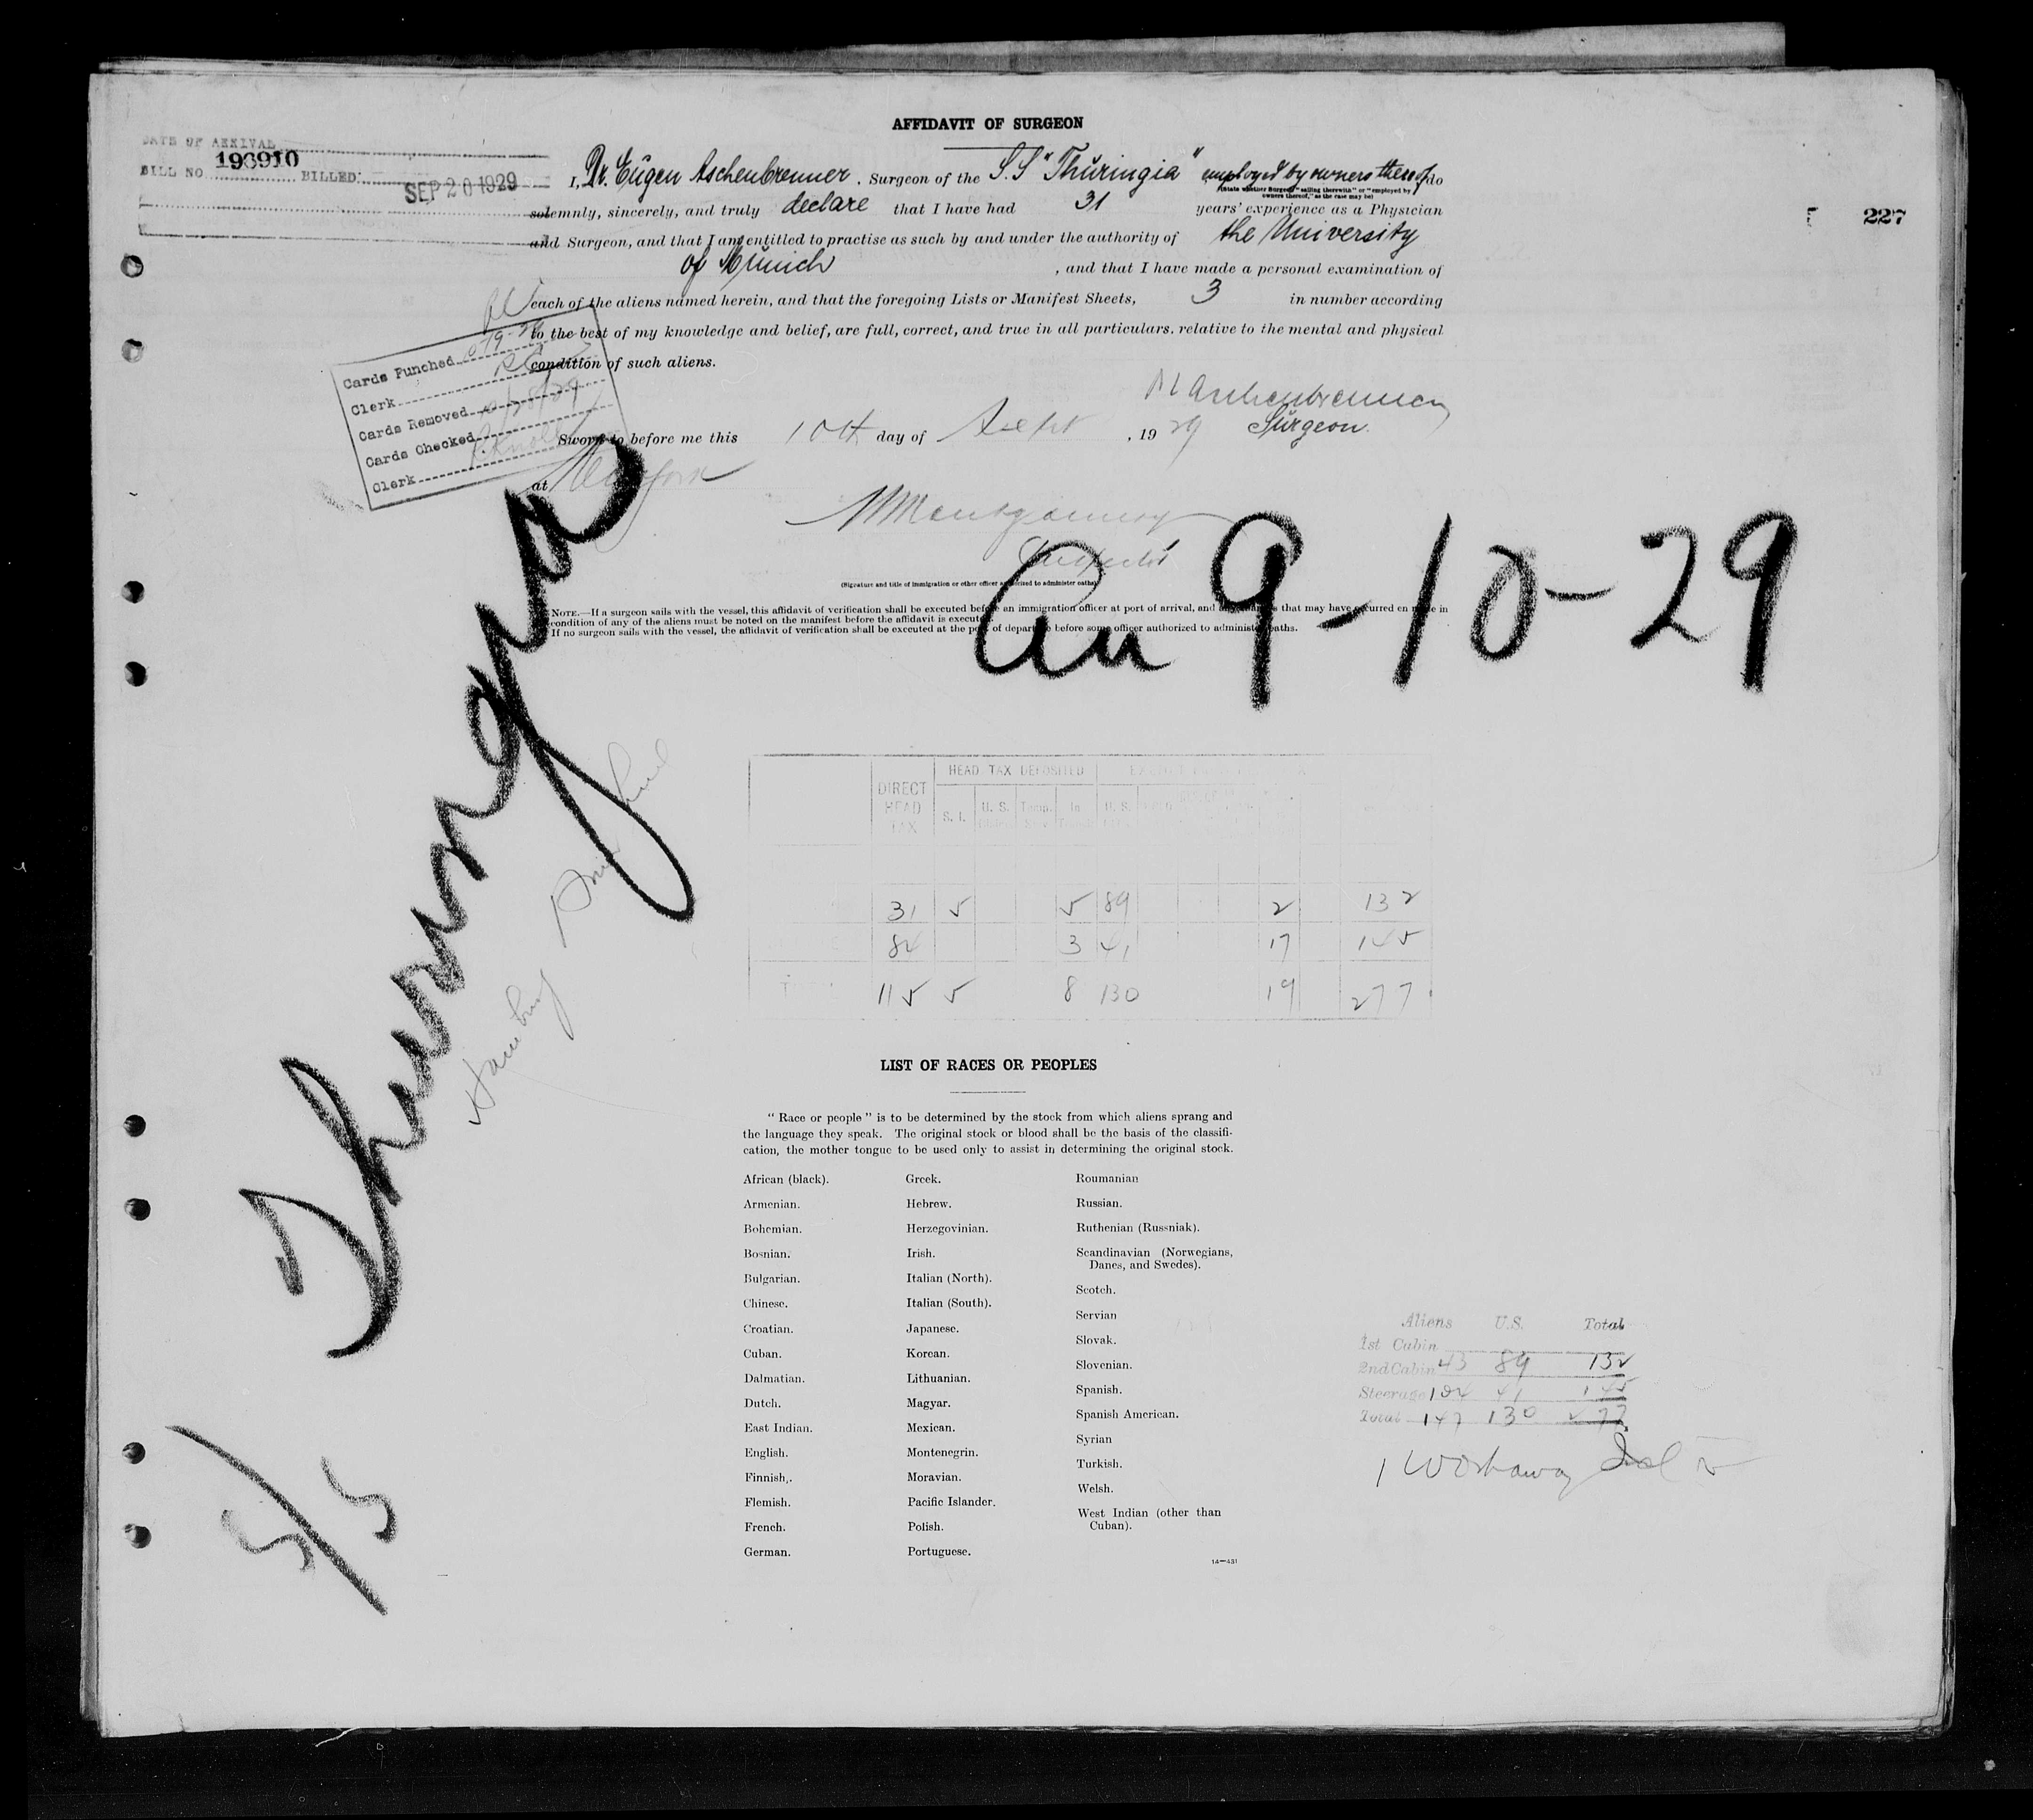 AFFIDAVIT OF SURGEON
DATE OF ARRIVAL
BILL NO. 190910 BILLED: SEP 20 1929
I, Dr. Eugen Aschenbrenner, Surgeon of the S.S "Thüringia" employed by owners thereof do
(State whether Surgeon "sailing therewith" or "employed by
owners thereof," as the case may be)
solemnly, sincerely, and truly declare that I have had 31 years' experience as a Physician
227
and Surgeon, and that I am entitled to practise as such by and under the authority of the University
of Münich, and that I have made a personal examination of
each of the aliens named herein, and that the foregoing Lists or Manifest Sheets, 3 in number according
to the best of my knowledge and belief, are full, correct, and true in all particulars. relative to the mental and physical
condition of such aliens.
Cards Punched
Clerk
Cards Removed
Cards Checked
Clerk
Aschenbrenner
Surgeon.
Sworn to before me this 10th day of Sept, 19 29
at New York
Montgomery
(Signature and title of immigration or other officer authorized to administer oaths)
NOTE.—If a surgeon sails with the vessel, this affidavit of verification shall be executed before an immigration officer at port of arrival, and any changes that may have occurred en route in
condition of any of the aliens must be noted on the manifest before the affidavit is executed.
If no surgeon sails with the vessel, the affidavit of verification shall be executed at the port of departure before some officer authorized to administer oaths.
9-10-29
Thuringia
Hamburg
5/5
HEAD TAX DEPOSITED
DIRECT HEAD TAX S. I. U. S. Temp. In U. S.
31 5 5 89 2 132
84 3 41 17 145
115 5 8 130 19 277
LIST OF RACES OR PEOPLES
" Race or people " is to be determined by the stock from which aliens sprang and
the language they speak. The original stock or blood shall be the basis of the classifi-
cation, the mother tongue to be used only to assist in determining the original stock.
African (black).
Armenian.
Bohemian.
Bosnian.
Bulgarian.
Chinese.
Croatian.
Cuban.
Dalmatian.
Dutch.
East Indian.
English.
Finnish,.
Flemish.
French.
German.
Greek.
Hebrew.
Herzegovinian.
Irish.
Italian (North).
Italian (South).
Japanese.
Korean.
Lithuanian.
Magyar.
Mexican.
Montenegrin.
Moravian.
Pacific Islander.
Polish.
Portuguese.
Roumanian
Russian.
Ruthenian (Russniak).
Scandinavian (Norwegians,
Danes, and Swedes).
Scotch.
Servian
Slovak.
Slovenian.
Spanish.
Spanish American.
Syrian
Turkish.
Welsh.
West Indian (other than
Cuban).
14—431
Aliens U.S. Total
1st Cabin
2nd Cabin 43 89 132
Steerage 104 41 145
Total 147 130 277
1 Workaway